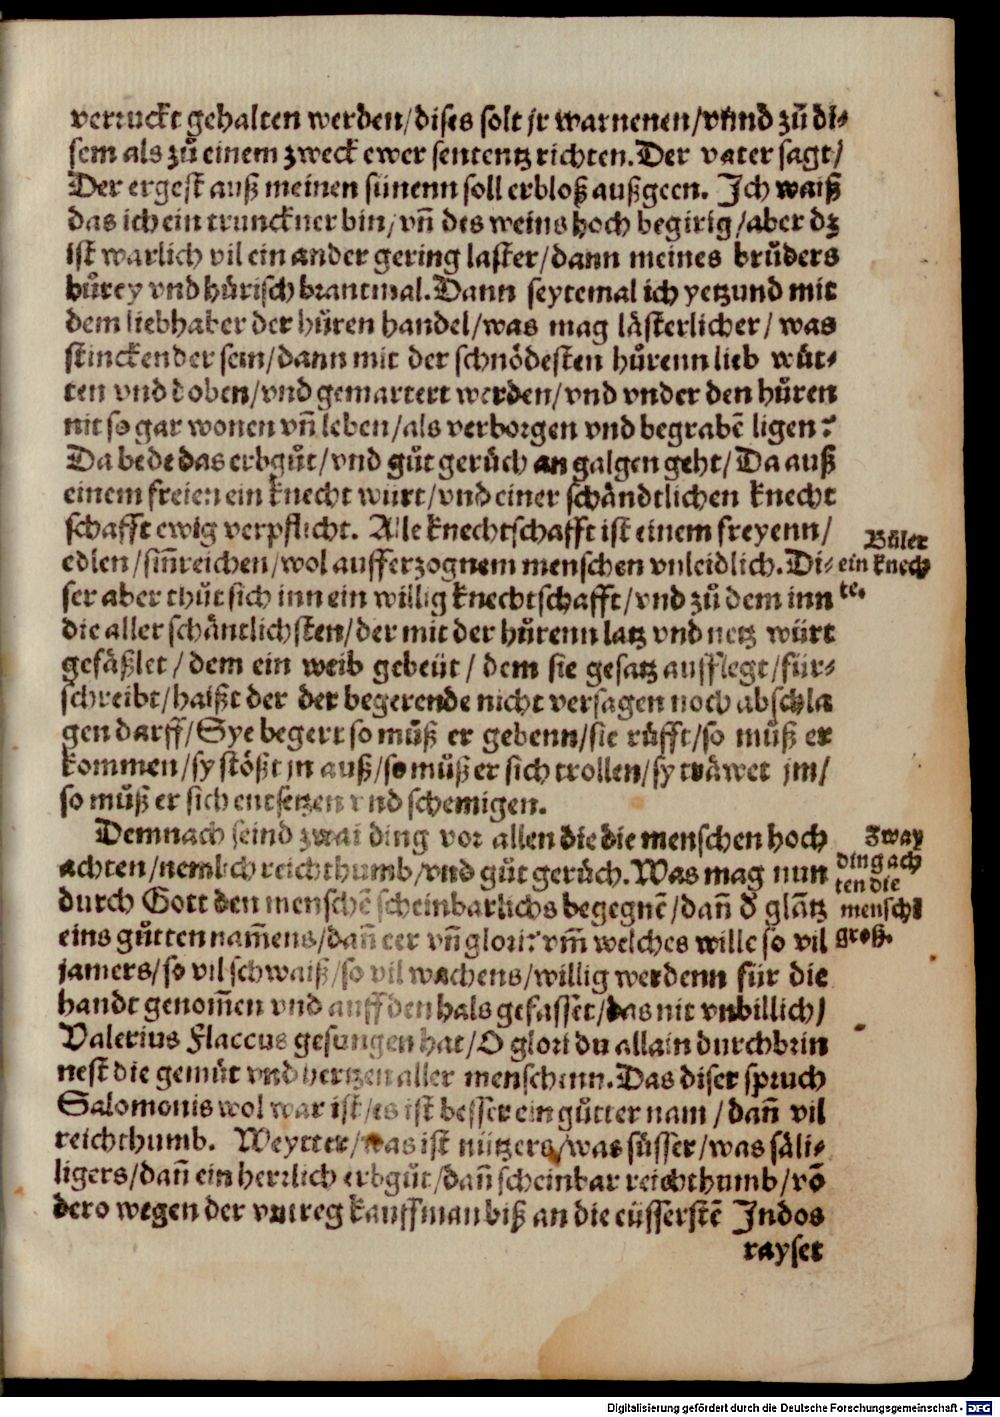 verruckt gehalten werden/dises solt jr warnenen/vnnd zů di-
sem als zů einem zweck ewer sententz richten. Der vater sagt/
Der ergest auß meinen sünenn soll erbloß außgeen. Jch waiß
das ich ein trunckner bin/vñ des weins hoch begirig/aber dz
ist warlich vil ein ander gering laster/dann meines brůders
hůrey vnd hůrisch brantmal. Dann seytemal ich yetzund mit
dem liebhaber der hůren handel/was mag lästerlicher/was
stinckender sein/dann mit der schnödesten hůrenn lieb wüt-
ten vnd doben/vnd gemartert werden/vnd vnder den hůren
nit so gar wonen vñ leben/als verborgen vnd begrabē ligen?
Da bede das erbgůt/vnd gůt gerüch an galgen geht/Da auß
einem freien ein knecht würt/vnd einer schändtlichen knecht
schafft ewig verpflicht. Alle knechtschafft ist einem freyenn/
edlen/siñreichen/wol aufferzognem menschen vnleidlich. Di-
ser aber thůt sich inn ein willig knechtschafft/vnd zů dem inn
die aller schäntlichsten/der mit der hůrenn latz vnd netz würt
gefäßlet/dem ein weib gebeüt/dem sie gesatz aufflegt/für-
schreibt/haißt der der begerende nicht versagen noch abschla
gen darff/Sye begert so můß er gebenn/sie růfft/so můß er
kommen/sy stößt jn auß/so můß er sich trollen/sy träwet jm/
so můß er sich entsetzen vnd schemigen.
Büler
ein knech
te.
Demnach seind zwai ding vor allen die die menschen hoch
achten/nemlich reichthumb/vnd gůt gerüch. Was mag nun
durch Gott den menschē scheinbarlichs begegnē/dañ d glātz
eins gůtten nam̄ens/dañ eer vñ glori? vm̄ welches wille so vil
jamers/so vil schwaiß/so vil wachens/willig werdenn für die
handt genom̄en vnd auff den hals gefasset/das nit vnbillich/
Valerius Flaccus gesungen hat/O glori du allain durchbrin
nest die gemůt vnd hertzen aller menschenn. Das diser spruch
Salomonis wol war ist/es ist besser ein gůtter nam/dañ vil
reichthumb. Weytter/was ist nützers/was süsser/was säli-
ligers/dañ ein herrlich erbgůt/dañ scheinbar reichthumb/vō
dero wegen der vntreg kauffman biß an die eüsserstē Jndos
rayset
Zway
ding ach
ten die
menschē
groß.
Digitalisierung gefördert durch die Deutsche Forschungsgemeinschaft - DFG